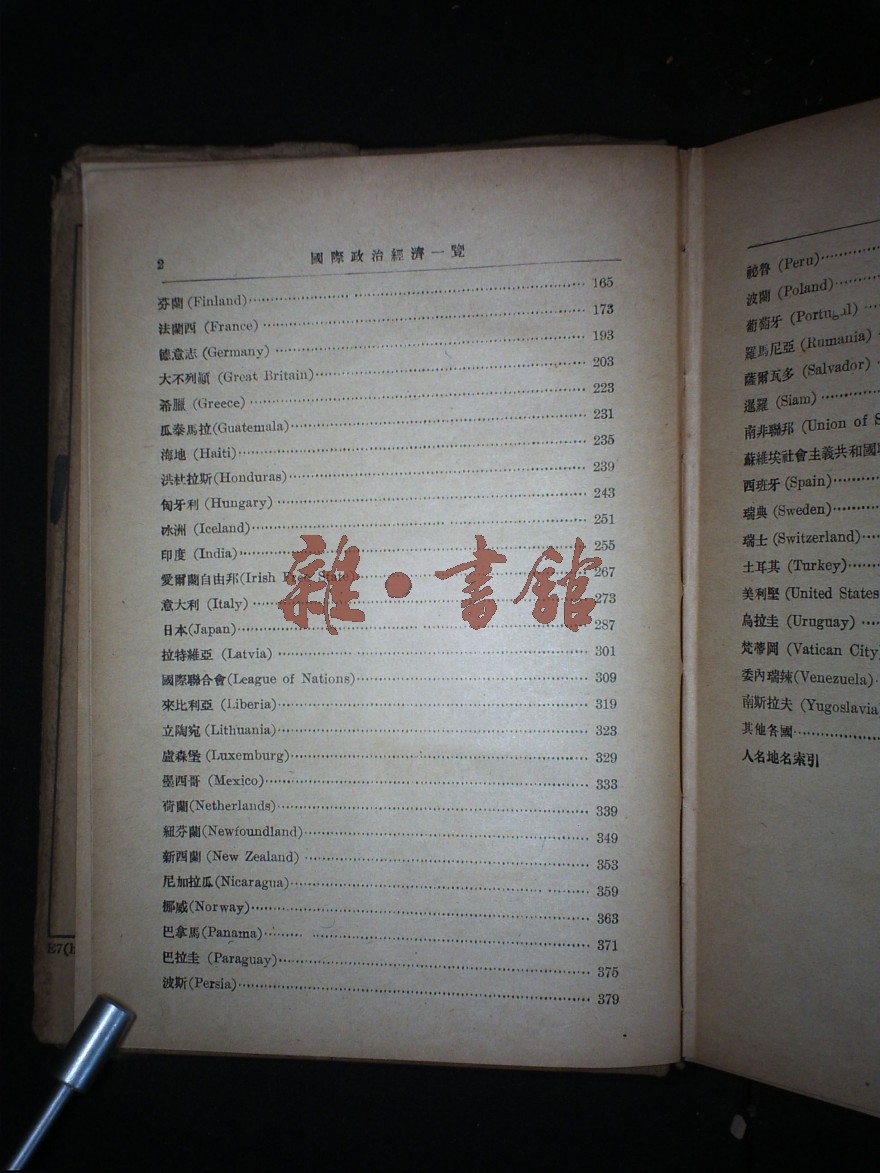 2
國際政治經濟一覽
芬蘭(Finland)……165
法蘭西 (France)……173
德意志 (Germany)……193
大不列顛 (Great Britain)……203
希臘 (Greece)……223
瓜泰馬拉(Guatemala)……231
海地 (Haiti)……235
洪杜拉斯(Honduras)……239
匈牙利 (Hungary)……243
冰洲 (Iceland)……251
印度 (India)……255
愛爾蘭自由邦(Irish Free State)……267
意大利 (Italy)……273
日本(Japan)……287
拉特維亞 (Latvia)……301
國際聯合會(League of Nations)……309
來比利亞 (Liberia)……319
立陶宛 (Lithuania)……323
盧森堡 (Luxemburg)……329
墨西哥 (Mexico)……333
荷蘭(Netherlands)……339
紐芬蘭(Newfoundland)……349
新西蘭 (New Zealand)……353
尼加拉瓜(Nicaragua)……359
挪威(Norway)……363
巴拿馬(Panama)……371
巴拉圭 (Paraguay)……375
波斯(Persia)……379
雜·書館
祕魯 (Peru)……
波蘭 (Poland)……
葡萄牙 (Portugal)……
羅馬尼亞 (Rumania)
薩爾瓦多 (Salvador)
暹羅 (Siam)……
南非聯邦 (Union of S
蘇維埃社會主義共和國
西班牙 (Spain)……
瑞典 (Sweden)……
瑞士 (Switzerland)……
土耳其 (Turkey)……
美利堅 (United States
烏拉圭 (Uruguay)……
梵蒂岡 (Vatican City
委內瑞辣(Venezuela)
南斯拉夫 (Yugoslavia
其他各國……
人名地名索引